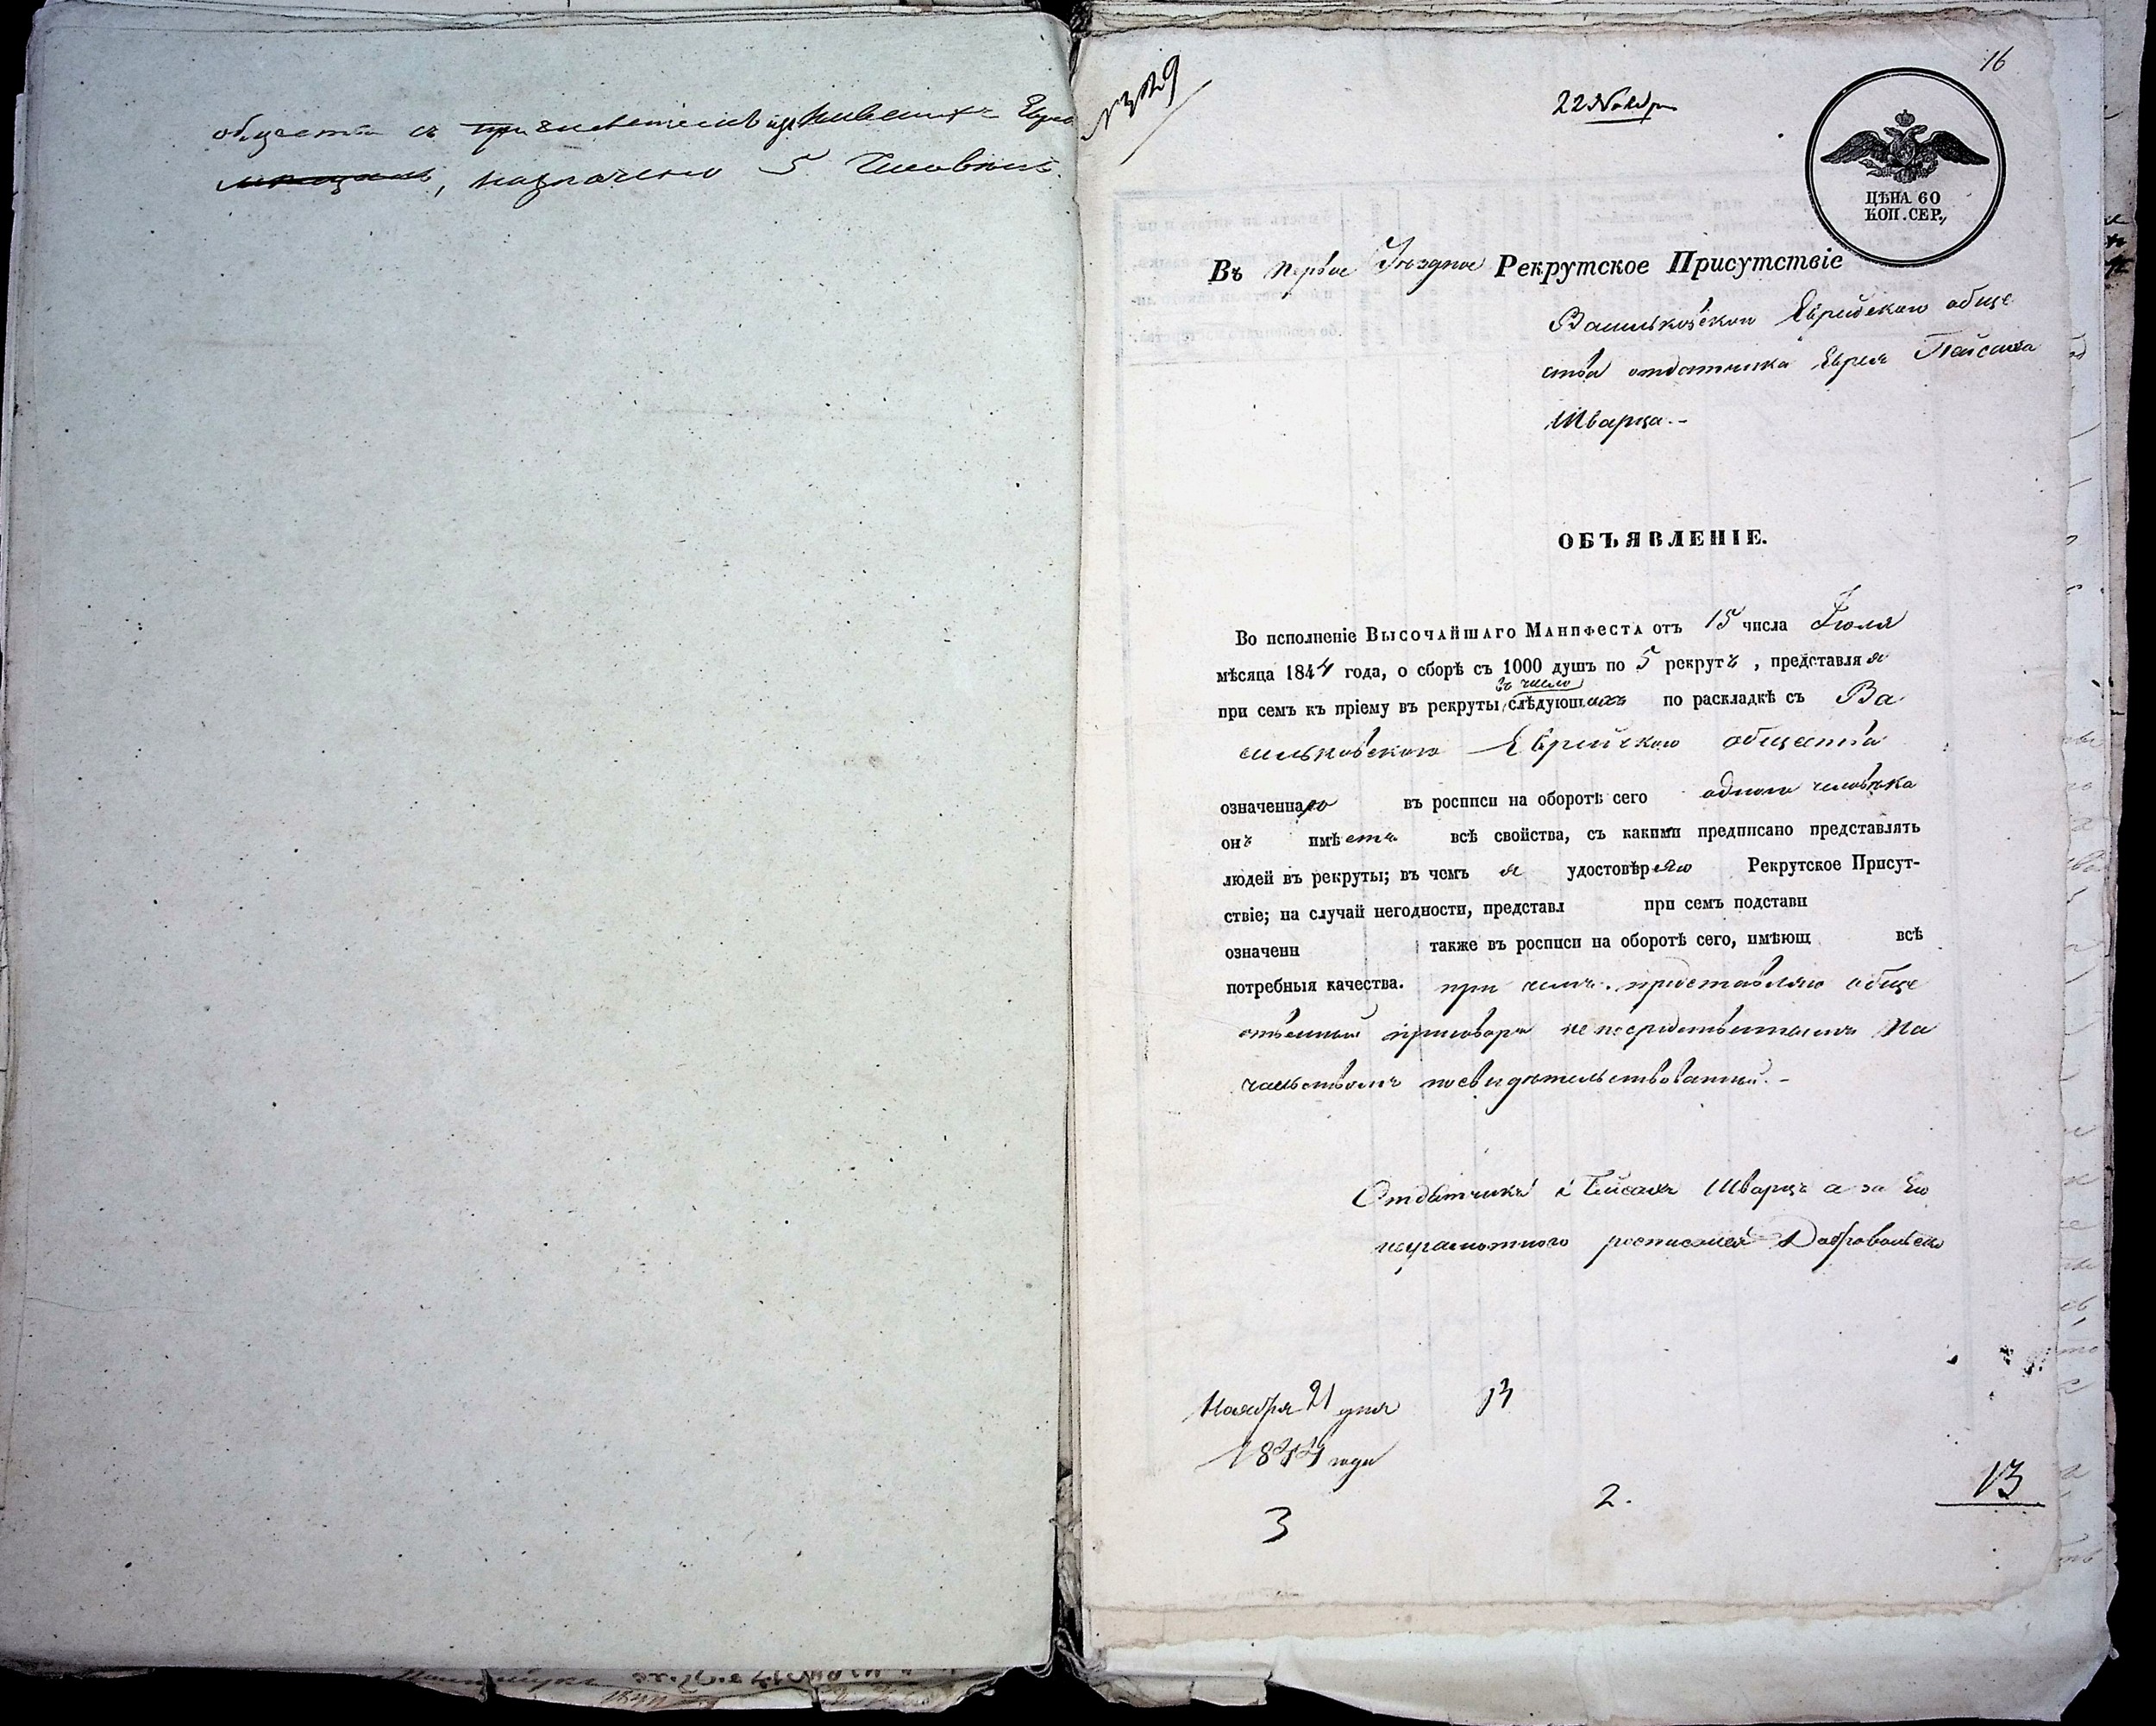 общества съ
назначено 5 Человѣкъ.
16
22 Ноябр
ЦѢНА 60
КОП. СЕР.
Въ первое Уѣздное Рекрутское Присутствіе
Васильковскаго Еврейскаго обще
ства отдатчика Еврея Пейсаха
Шварца.-
ОБЪЯВЛЕНІЕ.
Во исполненіе Высочайшаго Манифеста отъ 15 числа Іюля
мѣсяца 1844 года, о сборѣ съ 1000 душъ по 5 рекрутъ, представляя
въ число
при семъ къ пріему въ рекруты слѣдующихъ по раскладкѣ съ Ва
сильковскаго Еврейскаго общества
означеннаго въ росписи на оборотѣ сего одного человѣка
онъ имѣетъ всѣ свойства, съ какими предписано представлять
людей въ рекруты; въ чемъ я удостовѣряю Рекрутское Присут-
ствіе; на случай негодности, представл при семъ подставн
означенн также въ росписи на оборотѣ сего, имѣющ всѣ
потребныя качества. при чемъ представляю обще
ственный приговоръ непосредственнымъ На
чальствомъ посвидѣтельствованный.-
Отдатчикъ Пейсахъ Шварцъ а за Его
неграмотного росписался
Ноября 21 дня
1844 года
3
2.
13